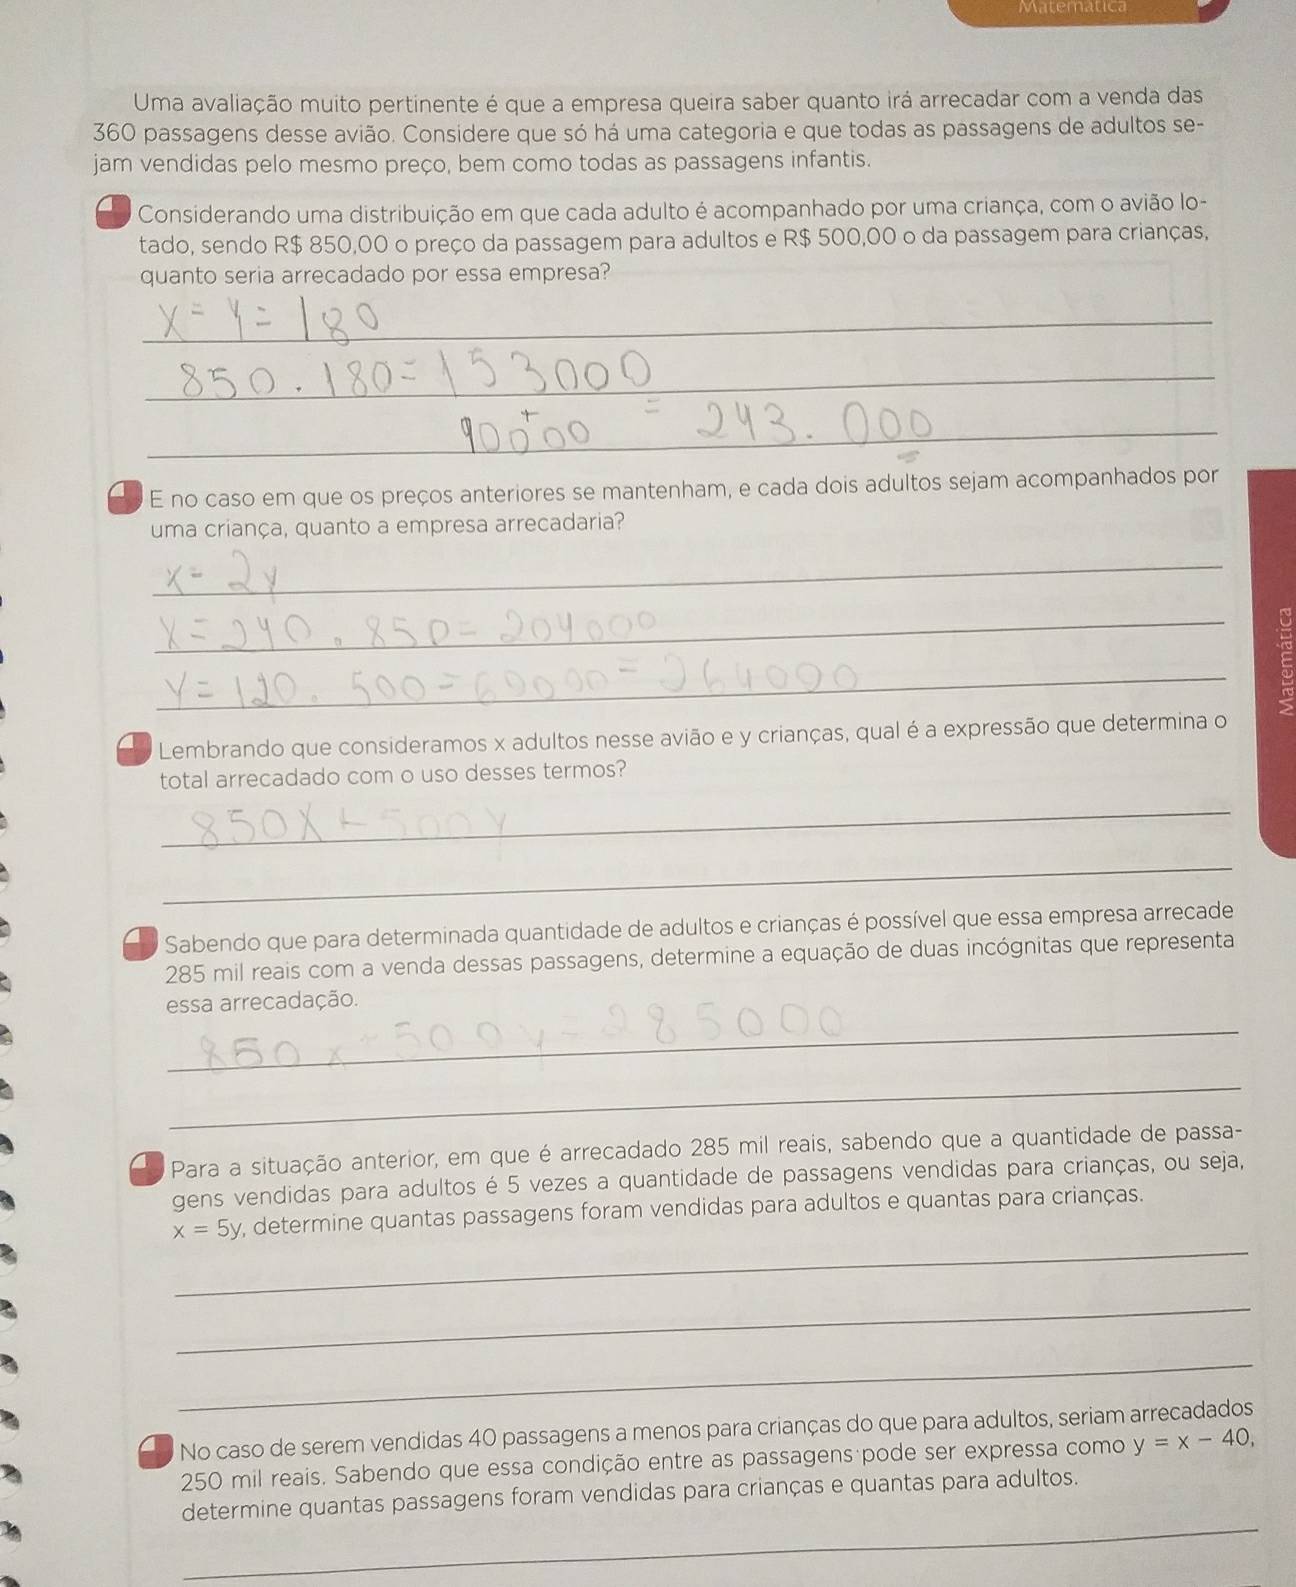 Matemática
Uma avaliação muito pertinente é que a empresa queira saber quanto irá arrecadar com a venda das
360 passagens desse avião. Considere que só há uma categoria e que todas as passagens de adultos se-
jam vendidas pelo mesmo preço, bem como todas as passagens infantis.
Considerando uma distribuição em que cada adulto é acompanhado por uma criança, com o avião lo-
tado, sendo R$ 850,00 o preço da passagem para adultos e R$ 500,00 o da passagem para crianças,
quanto seria arrecadado por essa empresa?
x = y = 180
850 . 180 = 153000
+
90000 = 243.000
E no caso em que os preços anteriores se mantenham, e cada dois adultos sejam acompanhados por
uma criança, quanto a empresa arrecadaria?
x = 2y
x = 240 . 850 = 204000
y = 120 . 500 = 60000 = 264000
Lembrando que consideramos x adultos nesse avião e y crianças, qual é a expressão que determina o
total arrecadado com o uso desses termos?
850x + 500y
Sabendo que para determinada quantidade de adultos e crianças é possível que essa empresa arrecade
285 mil reais com a venda dessas passagens, determine a equação de duas incógnitas que representa
essa arrecadação.
850x + 500y = 285000
Para a situação anterior, em que é arrecadado 285 mil reais, sabendo que a quantidade de passa-
gens vendidas para adultos é 5 vezes a quantidade de passagens vendidas para crianças, ou seja,
x = 5y, determine quantas passagens foram vendidas para adultos e quantas para crianças.
No caso de serem vendidas 40 passagens a menos para crianças do que para adultos, seriam arrecadados
250 mil reais. Sabendo que essa condição entre as passagens pode ser expressa como y = x - 40,
determine quantas passagens foram vendidas para crianças e quantas para adultos.
Matemática